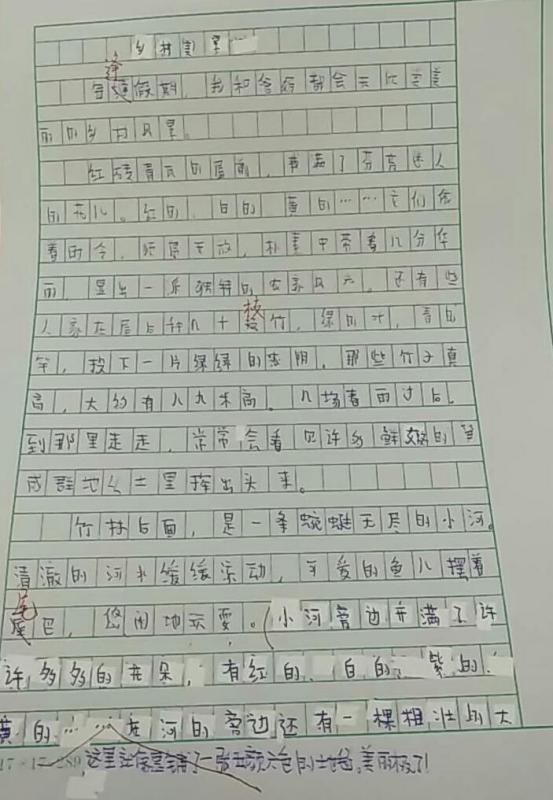 乡村美景
逢
每逢假期，我和爸爸都会去欣赏美
丽的乡村风景。
红砖青瓦的屋前，种满了芬芳迷人
的花儿。红的、白的、黄的……它们依
着时令，顺序开放，朴素中带着几分华
丽，显出一派独特的农家风光。还有些
人家在屋后种几十枝竹，绿的叶，青的
竿，投下一片绿绿的浓阴，那些竹子真
高，大约有八九米高。几场春雨过后，
到那里走走，常常会看见许多鲜嫩的笋
成群地从土里探出头来。
竹林后面，是一条蜿蜒无尽的小河。
清澈的河水缓缓流动，可爱的鱼儿摆着
尾巴，悠闲地玩耍。小河旁边开满了许
许多多的花朵，有红的、白的、紫的、
黄的……在河的旁边还有一棵粗壮的大
这里 一张五颜六色的 ，美丽极了！